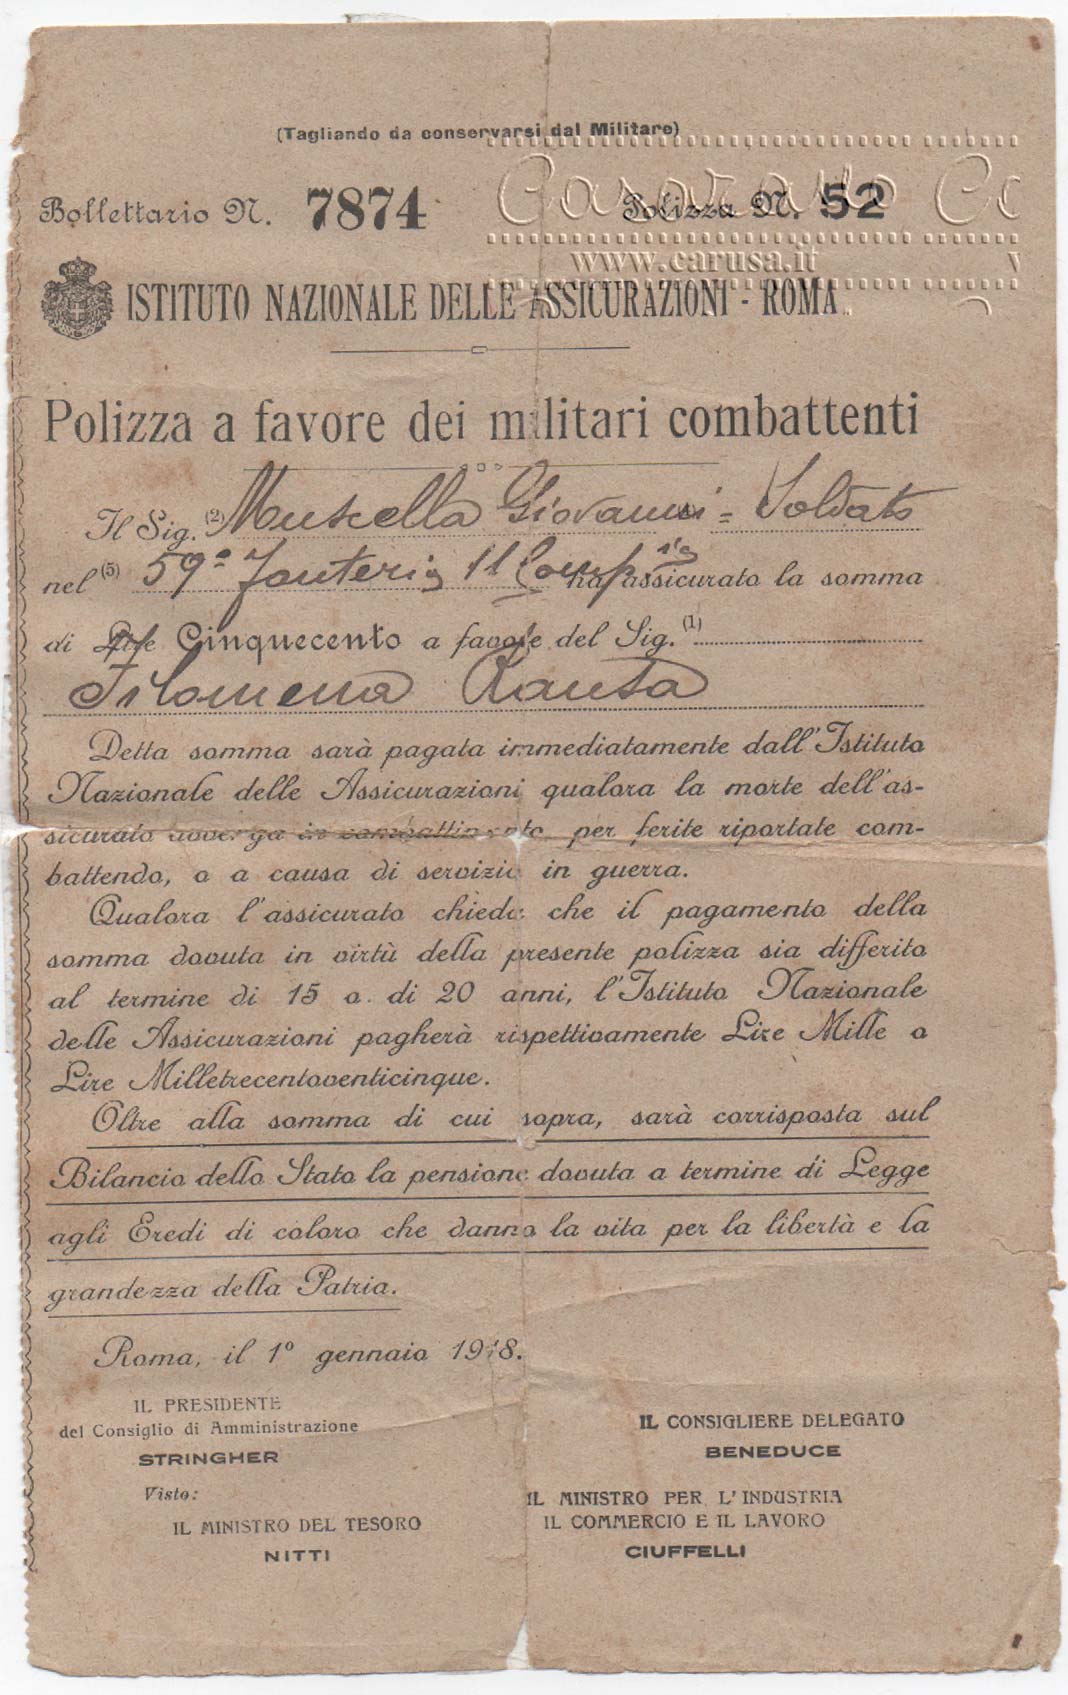 (Tagliando da conservarsi dal Militare)
Bollettario N. 7874 Polizza N. 52
www.carusa.it
ISTITUTO NAZIONALE DELLE ASSICURAZIONI - ROMA
Polizza a favore dei militari combattenti
Il Sig. (2) Muscella Giovanni = Soldato
nel (5) 59° Fanteria 11 Compnia ha assicurato la somma
di Lire Cinquecento a favore del Sig. (1)
Filomena Ransa
Detta somma sarà pagata immediatamente dall'Istituto
Nazionale delle Assicurazioni qualora la morte dell'as-
sicurato avvenga in combattimento, per ferite riportate com-
battendo, o a causa di servizio in guerra.
Qualora l'assicurato chieda che il pagamento della
somma dovuta in virtù della presente polizza sia differito
al termine di 15 o di 20 anni, l'Istituto Nazionale
delle Assicurazioni pagherà rispettivamente Lire Mille o
Lire Milletrecentoventicinque.
Oltre alla somma di cui sopra, sarà corrisposta sul
Bilancio dello Stato la pensione dovuta a termine di Legge
agli Eredi di coloro che danno la vita per la libertà e la
grandezza della Patria.
Roma, il 1° gennaio 1918.
IL PRESIDENTE
del Consiglio di Amministrazione
STRINGHER
IL CONSIGLIERE DELEGATO
BENEDUCE
Visto:
IL MINISTRO DEL TESORO
NITTI
IL MINISTRO PER L'INDUSTRIA
IL COMMERCIO E IL LAVORO
CIUFFELLI